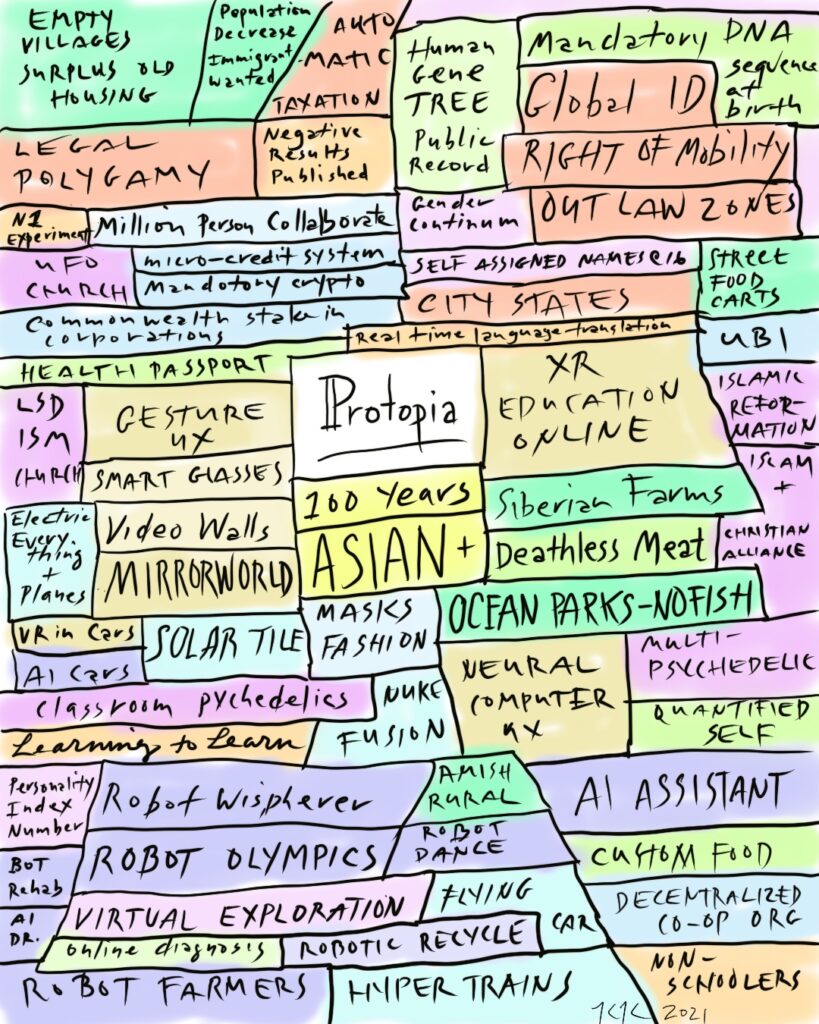 EMPTY
VILLAGES
SURPLUS OLD
HOUSING
Population
Decrease
Immigrant
Wanted
AUTO
-MATIC
TAXATION
Human
Gene
TREE
Public
Record
Mandatory DNA
sequence
at
birth
Global ID
LEGAL
POLYGAMY
Negative
Results
Published
RIGHT OF MObiLity
N1
Experiment
Million Person Collaborate
Gender
continuum
OUT LAW ZONES
UFO
CHURCH
micro-credit system
Mandotory crypto
SELF ASSIGNED NAMES@16
STREET
FOOD
CARTS
CITY STATES
Commonwealth stake in
corporations
Real time language translation
UBI
HEALTH PASSPORT
Protopia
XR
EDUCATION
ONLINE
ISLAMIC
REFOR-
MATION
LSD
ISM
CHURCH
GESTURE
UX
SMART GLASSES
100 Years
ASIAN +
Siberian Farms
ISLAM
+
CHRISTIAN
ALLIANCE
Electric
Every-
thing
+
Planes
Video Walls
MIRRORWORLD
Deathless Meat
OCEAN PARKS-NOFISH
VR in Cars
AI Cars
SOLAR TILE
MASKS
FASHION
NEURAL
COMPUTER
UX
MULTI-
PSYCHEDELIC
Classroom pychedelics
NUKE
FUSION
QUANTIFIED
SELF
Learning to Learn
Personality
Index
Number
Robot Wispherer
AMISH
RURAL
AI ASSISTANT
BOT
Rehab
ROBOT OLYMPICS
ROBOT
DANCE
CUSTOM FOOD
AI
DR.
VIRTUAL EXPLORATION
FLYING
CAR
DECENTRALIZED
CO-OP ORG
online diagnosis
ROBOTIC RECYCLE
ROBOT FARMERS
HYPER TRAINS
NON-
SCHOOLERS
KK 2021